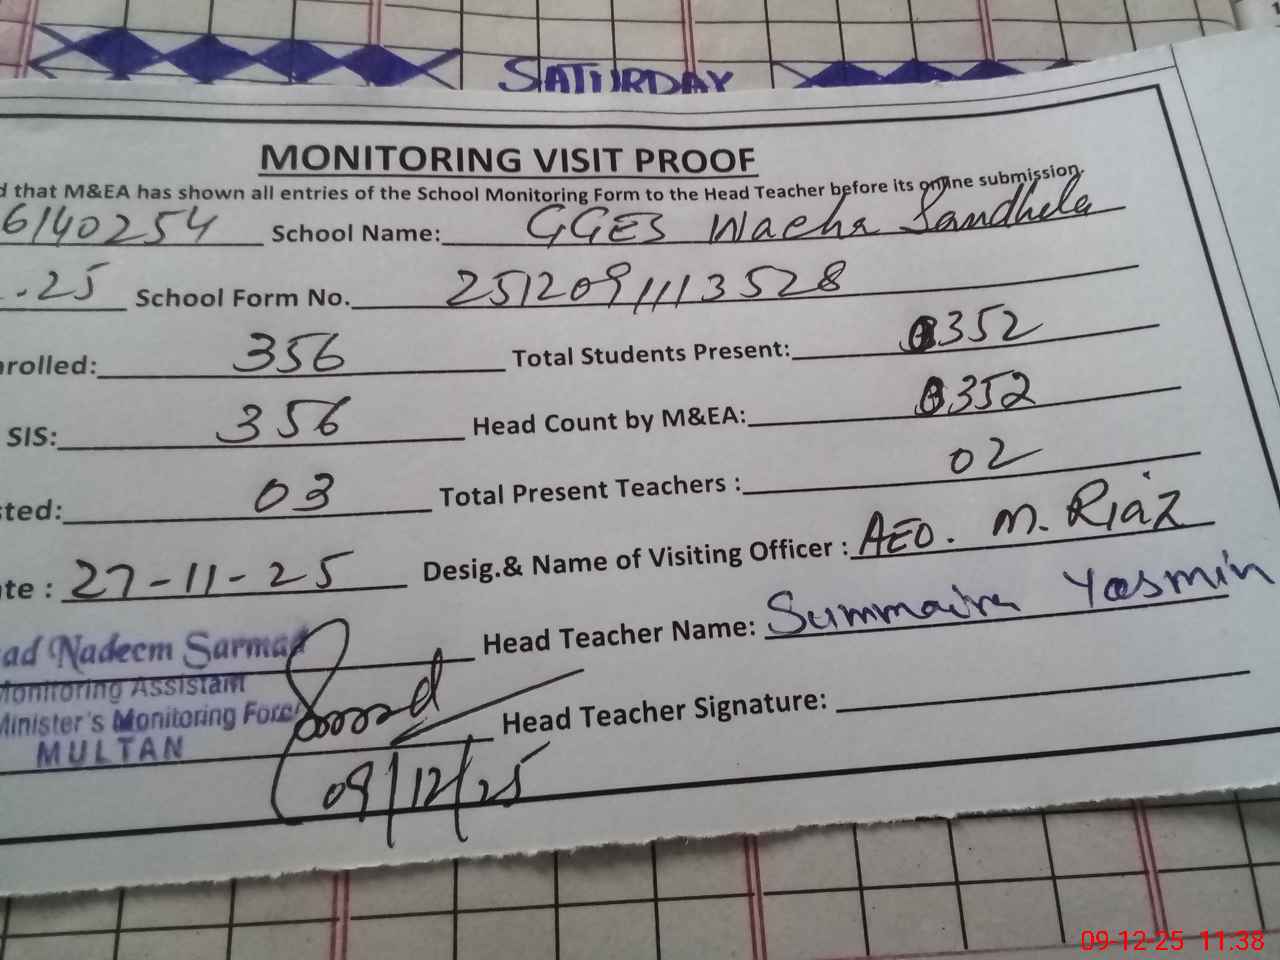 SATURDAY
MONITORING VISIT PROOF
d that M&EA has shown all entries of the School Monitoring Form to the Head Teacher before its online submission.
6140254 School Name: GGES Wacha Sandhela
.25 School Form No. 2512091113528
nrolled: 356 Total Students Present: 352
SIS: 356 Head Count by M&EA: 352
sted: 03 Total Present Teachers : 02
ate : 27-11-25 Desig.& Name of Visiting Officer : AEO. M. Riaz
ad Nadeem Sarmad Head Teacher Name: Summaira Yasmin
Monitoring Assistant
Minister's Monitoring Force
MULTAN
Head Teacher Signature:
09/12/25
09-12-25 11:38